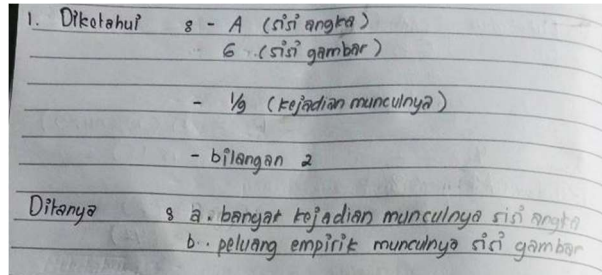 1. Diketahui : - A (sisi angka)
G (sisi gambar)
- 1/9 (kejadian munculnya)
- bilangan 2
Ditanya : a. bangak kejadian munculnya sisi angka
b.. peluang empirik munculnya sisi gambar